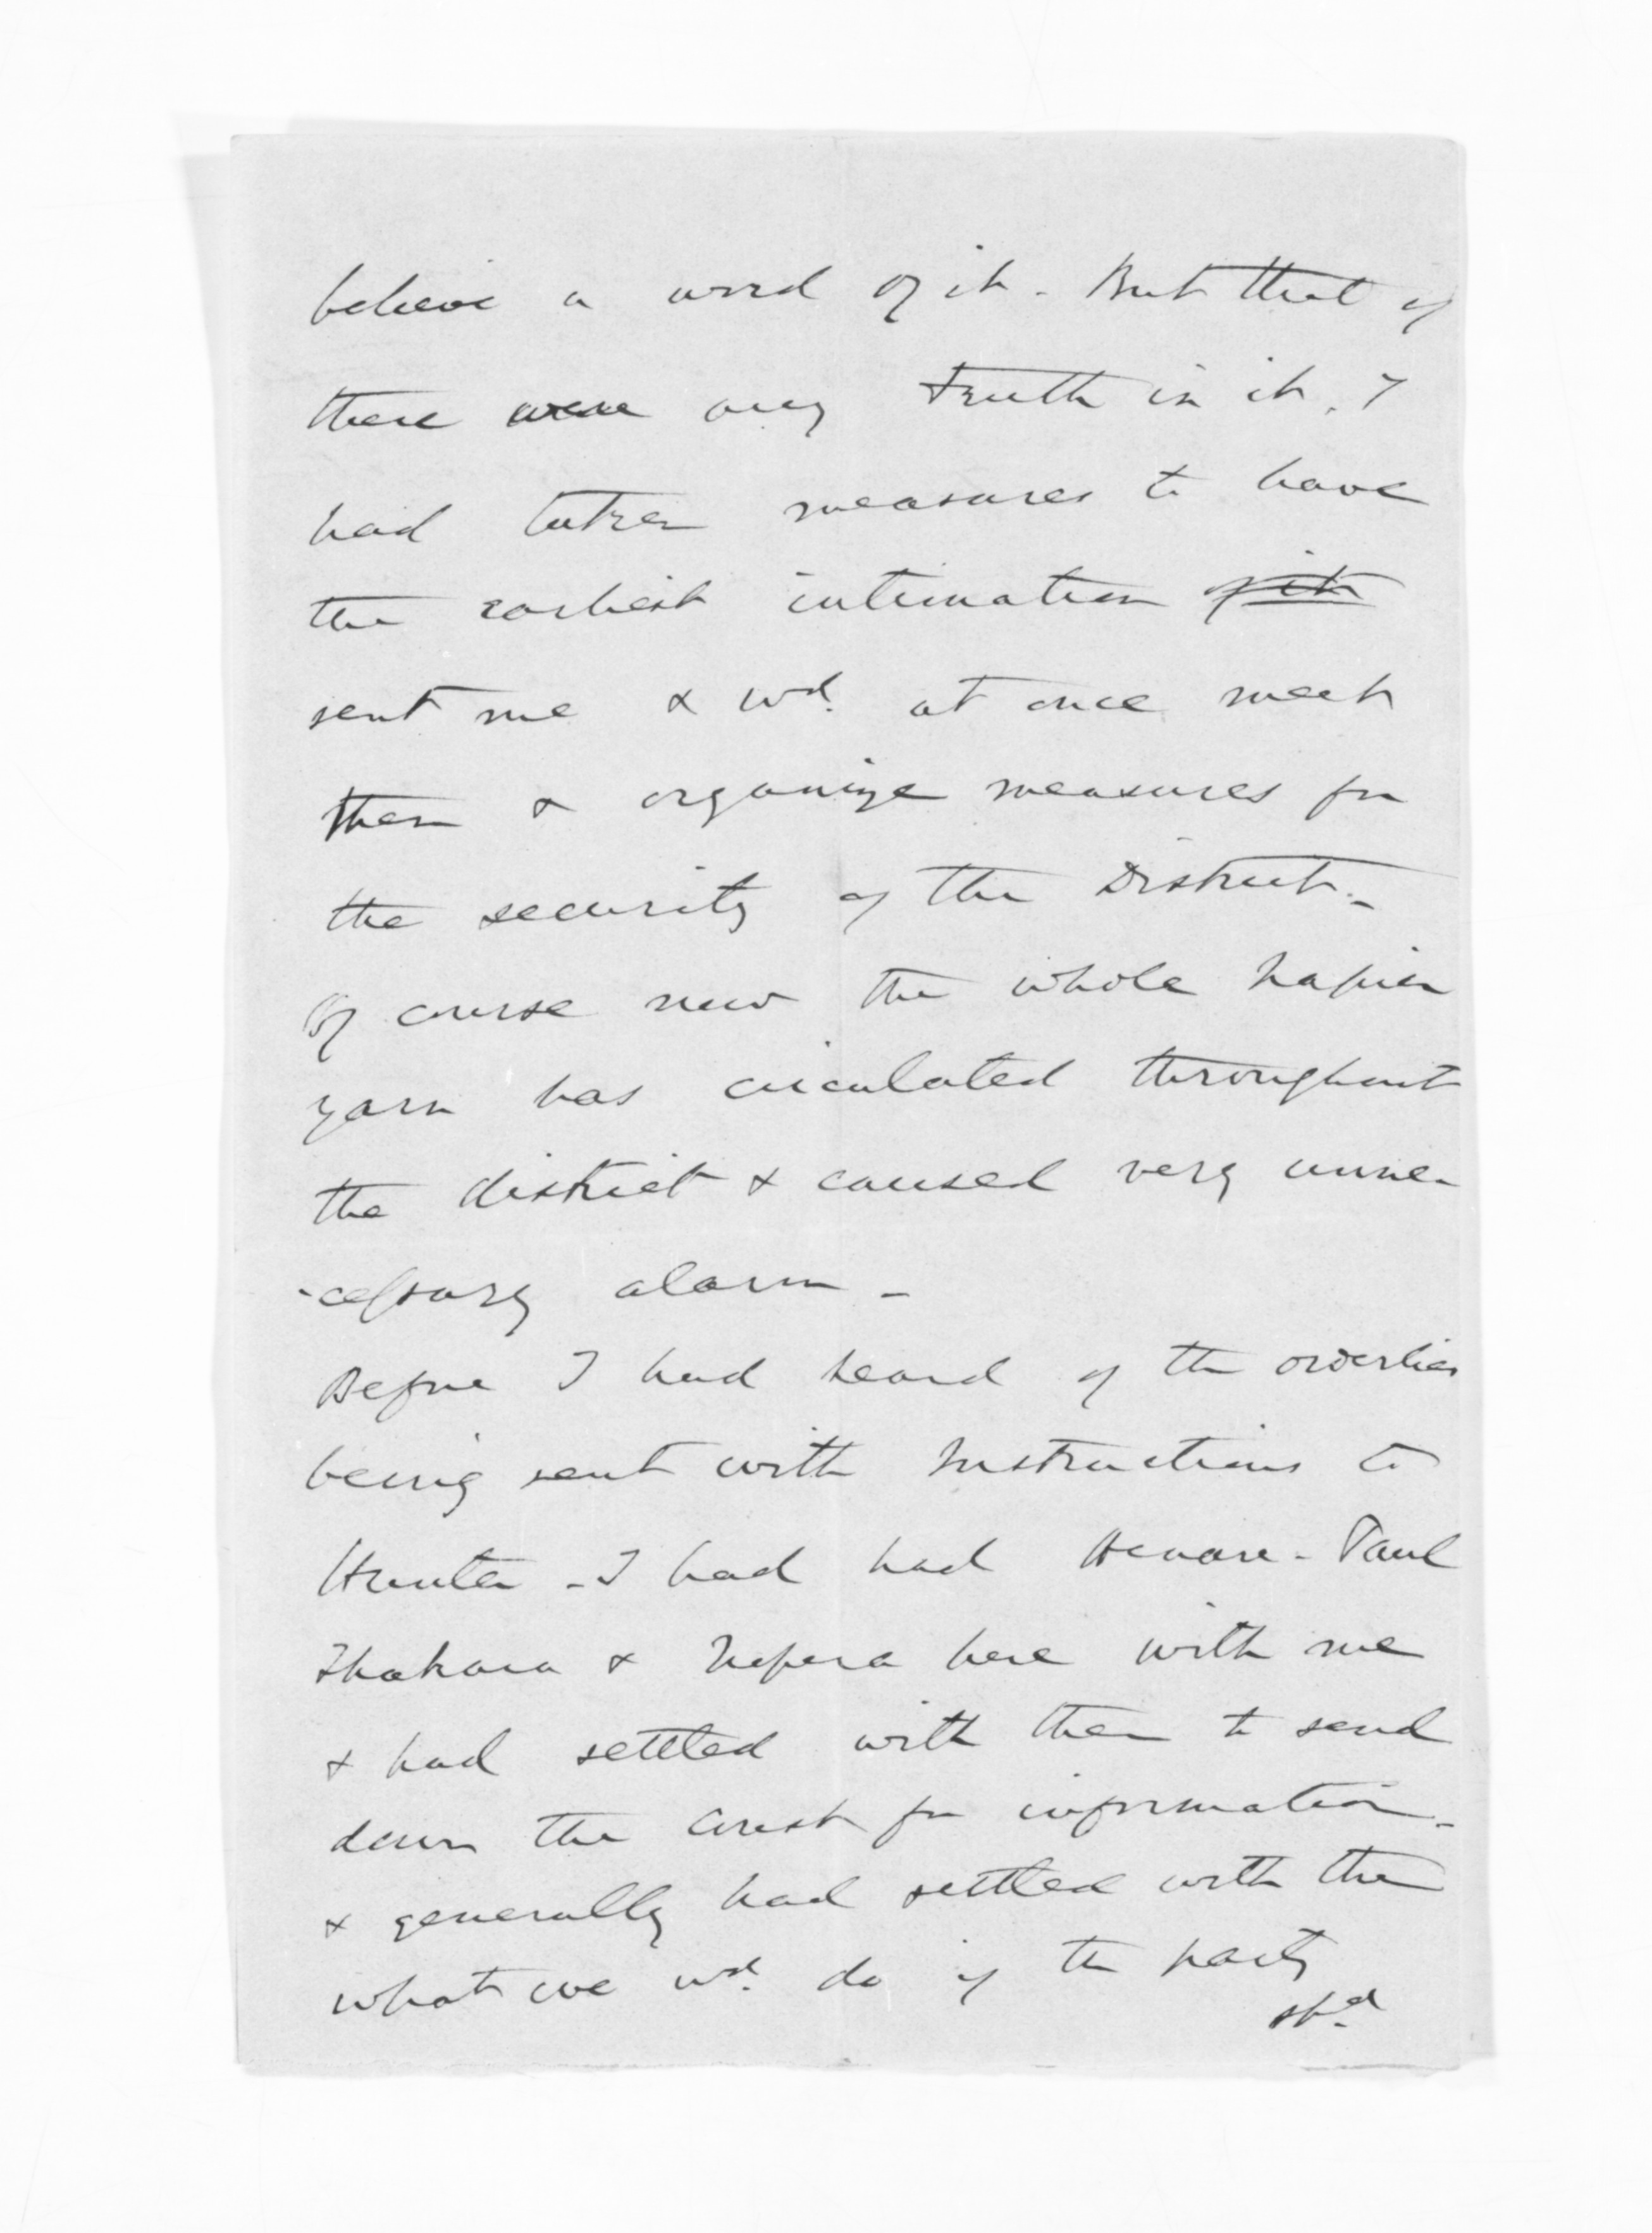 believe a word of it - But that if
there were any truth in it, I
had taken measures to have
the earliest intimation of it
sent me & wd. at once meet
them & organize measures for
the security of the District. -
Of course now the whole Napier
yarn has circulated throughout
the district & caused very unne-
-cessary alarm -
Before I had heard of the orderlies
being sent with Instructions to
Hunter - I had had Henare - Paul
& Nepera here with me
& had settled with them to send
down the Coast for information -
& generally had settled with them
what we wd. do if the party
shd.